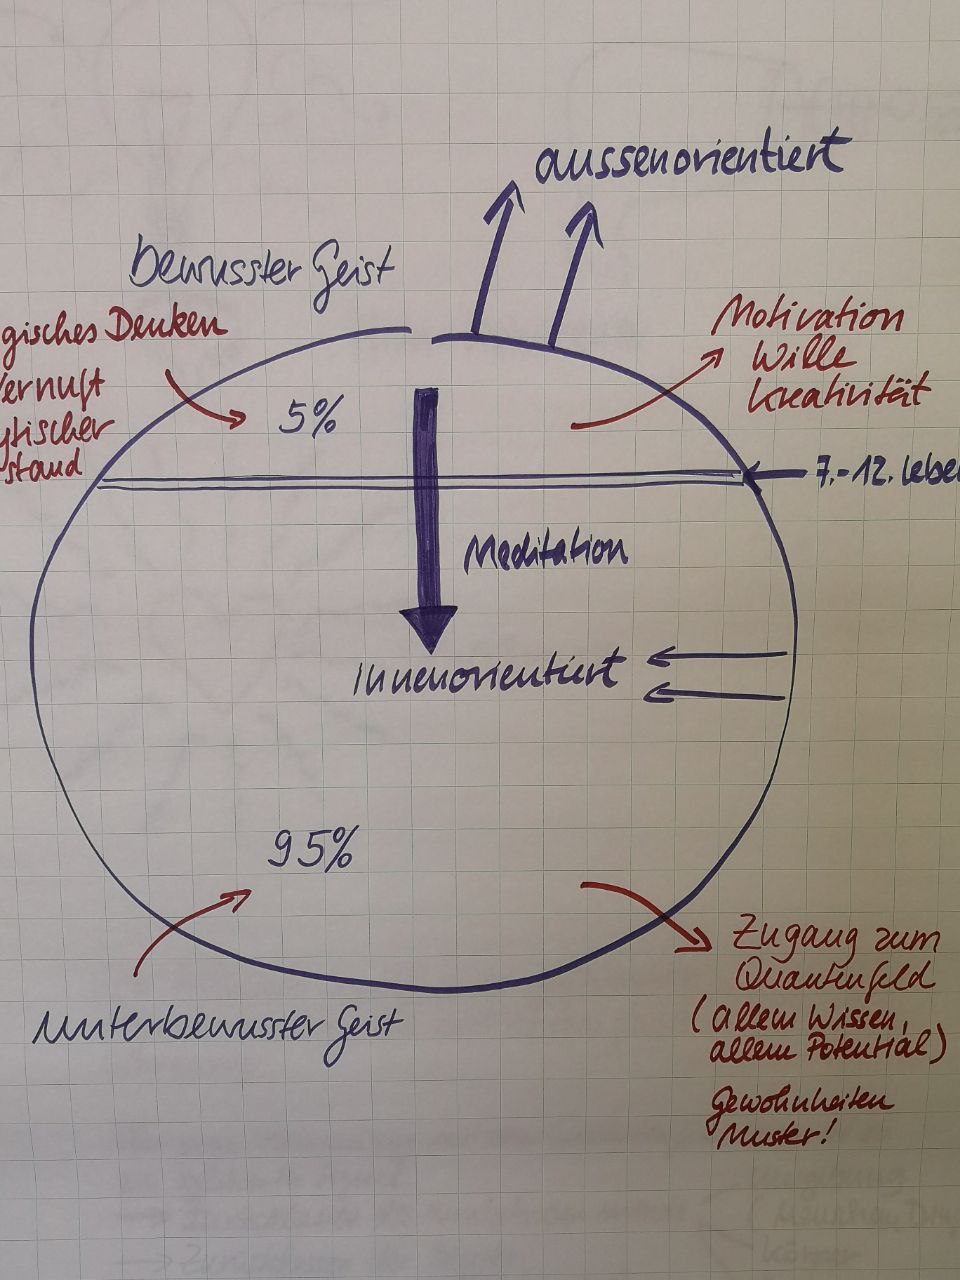 aussenorientiert
bewusster Geist
gisches Denken
Vernuft
ytischer
stand
5%
Motivation
Wille
Kreativität
7.-12. Lebe
Meditation
Innenorientiert
95%
Unterbewusster Geist
Zugang zum
Quantenfeld
(allem Wissen,
allem Potential)
Gewohnheiten
Muster!